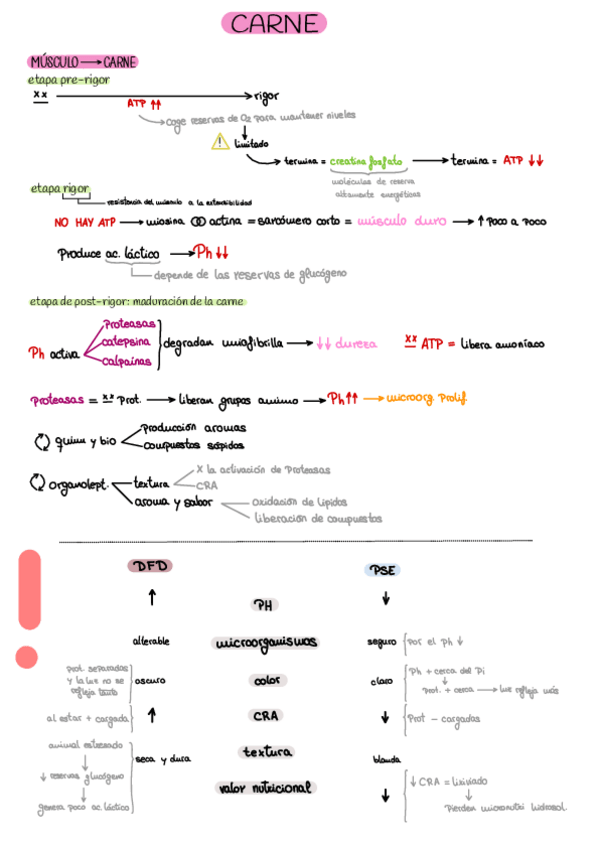 CARNE
MÚSCULO → CARNE
etapa pre-rigor
xx → rigor
ATP ↑↑
Coge reservas de O2 para mantener niveles
limitado
termina = creatina fosfato → termina = ATP ↓↓
moléculas de reserva
altamente energéticas
etapa rigor
resistencia del músculo a la extensibilidad
NO HAY ATP → miosina actina = sarcómero corto = músculo duro → ↑ poco a poco
Produce ac. láctico → Ph ↓↓
depende de las reservas de glucógeno
etapa de post-rigor: maduración de la carne
Ph activa
Proteasas
catepsina
calpaínas
degradan miofibrilla → ↓↓ dureza
xx ATP = libera amoníaco
Proteasas = xx Prot. → liberan grupos amino → Ph ↑↑ → microorg. Prolif.
quim y bio
Producción aromas
compuestos sápidos
organolept.
textura
x la activación de Proteasas
CRA
aroma y sabor
oxidación de lípidos
liberación de compuestos
DFD
PSE
↑ PH ↓
alterable microorganismos seguro
Por el Ph ↓
Prot. separadas
y la luz no se
refleja tanto
oscuro color claro
Ph + cerca del Pi
↓
Prot. + cerca → luz refleja más
al estar + cargada
↑ CRA ↓
Prot - cargadas
animal estresado
↓
↓ reservas glucógeno
↓
genera poco ac. láctico
seca y dura textura blanda
valor nutricional ↓
↓ CRA = lixiviado
↓
Pierden micronutri hidrosol.